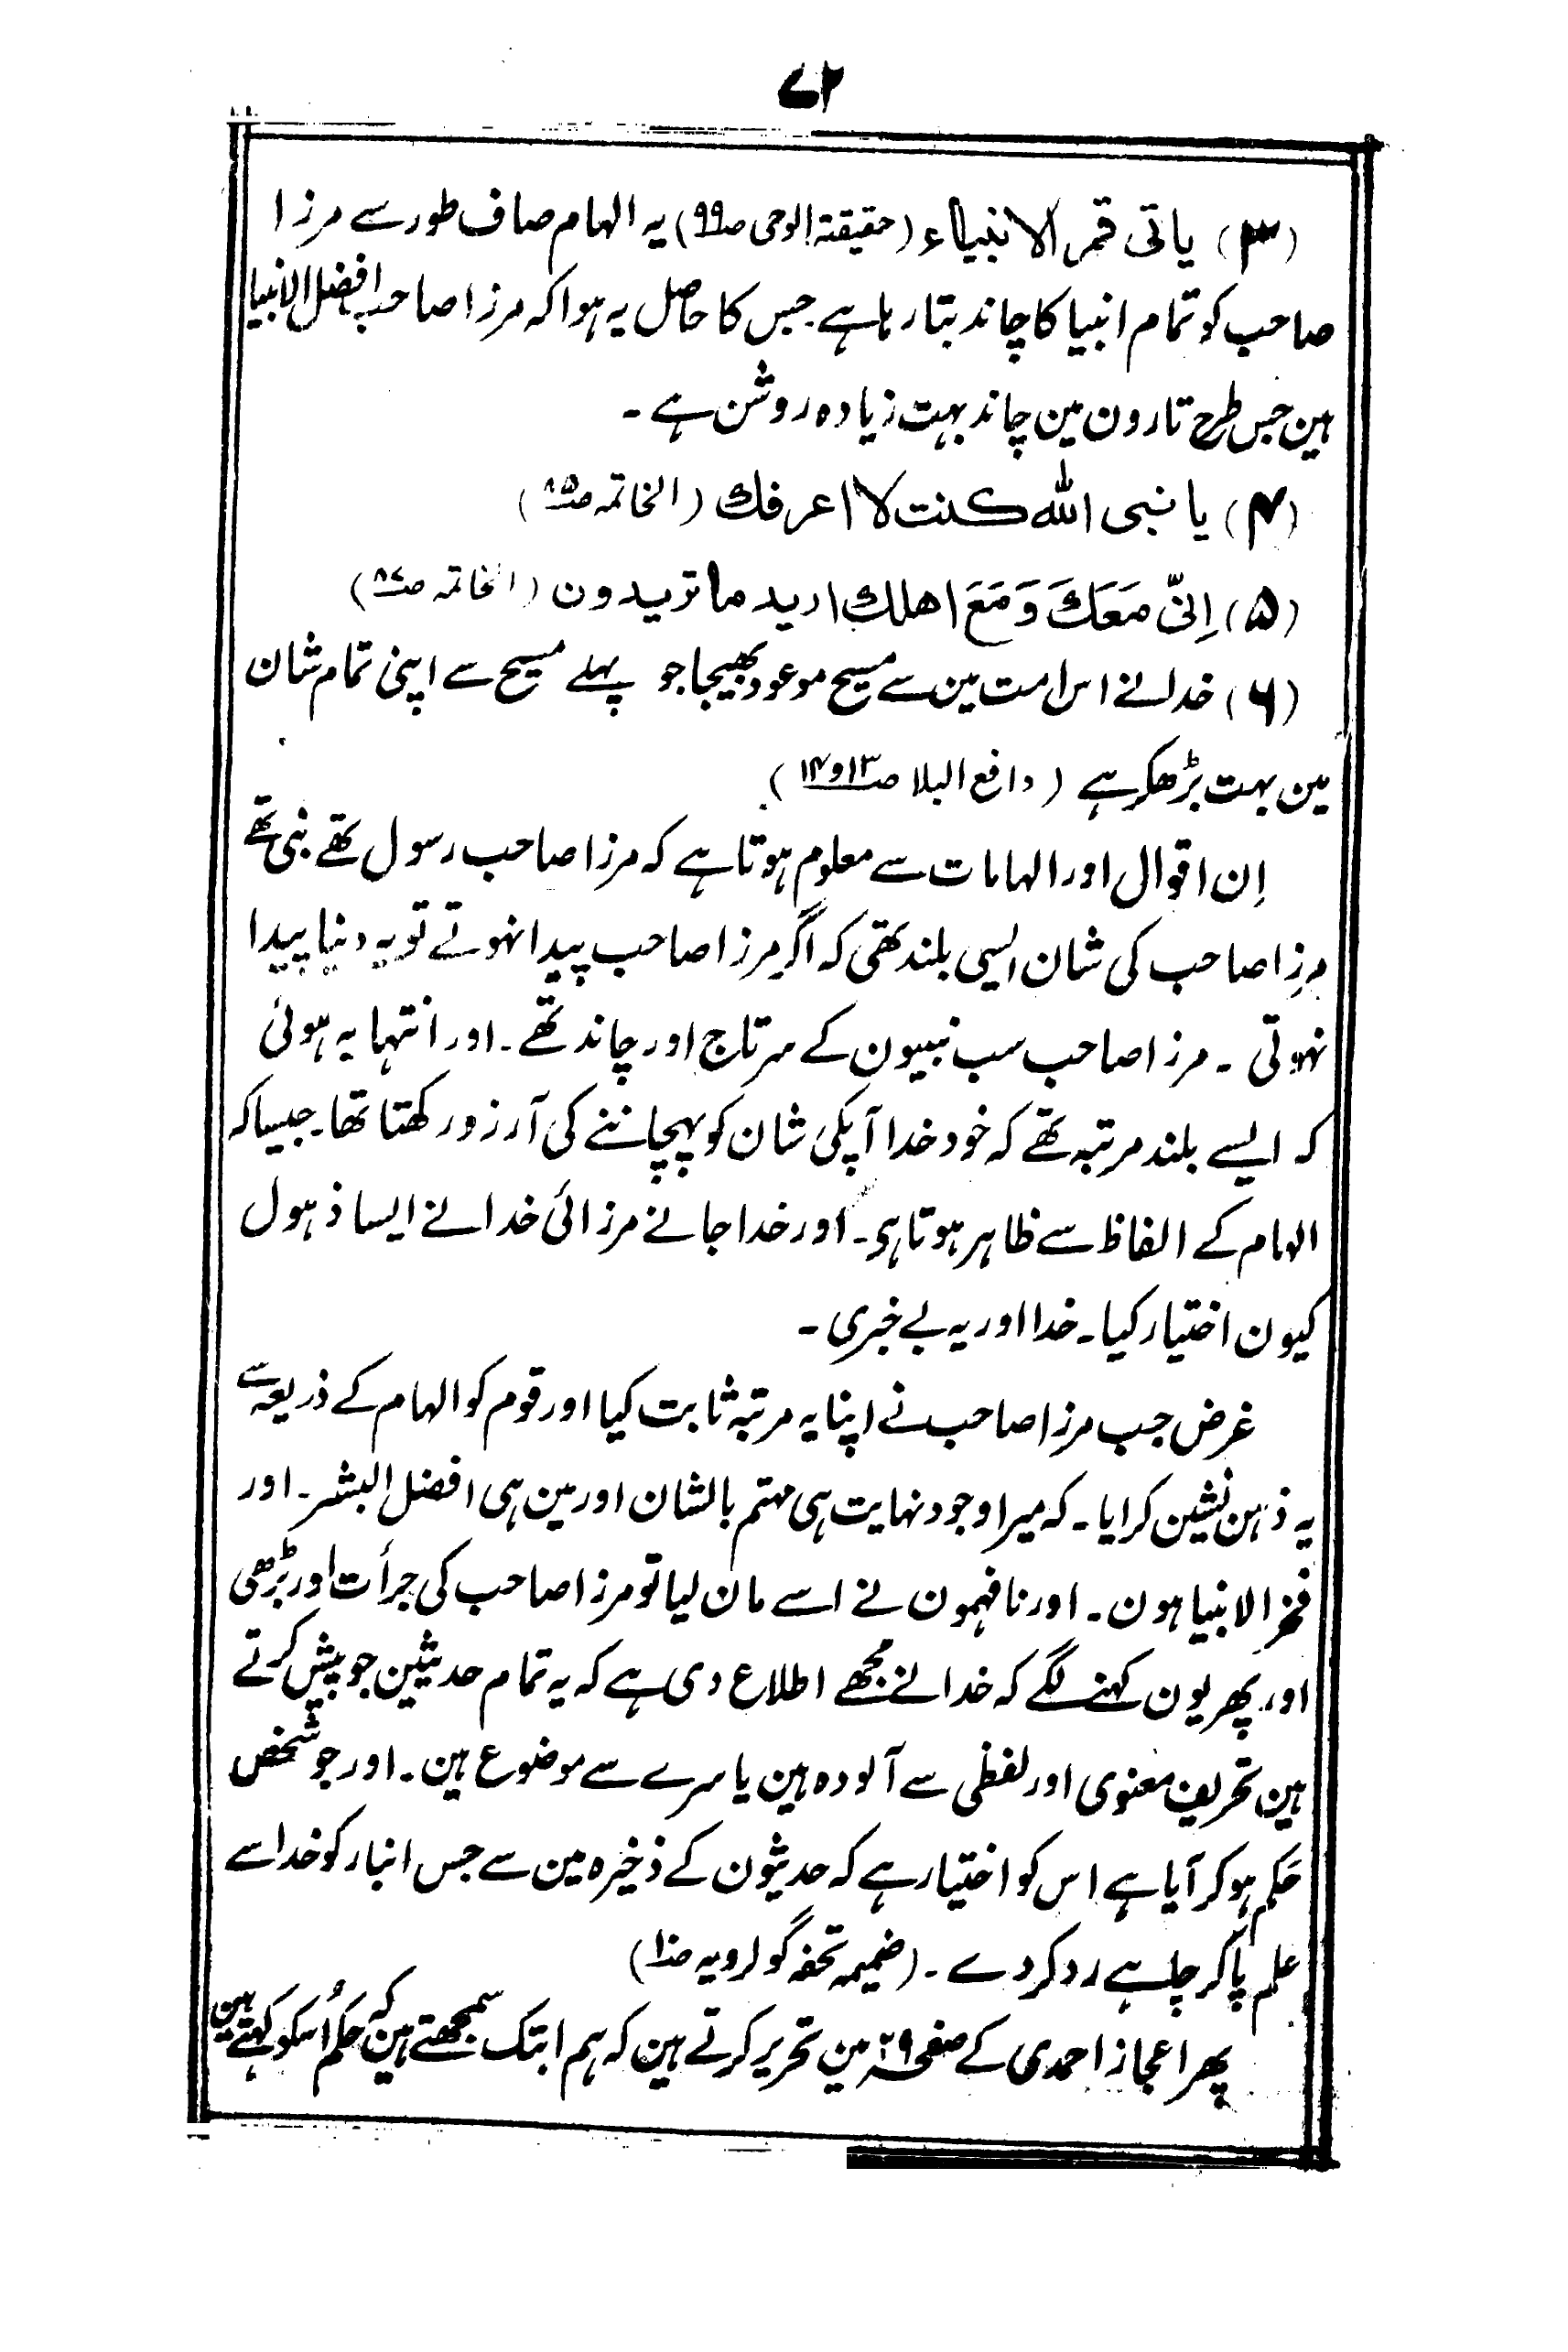 ۷۲
(۳) یاتی قمر الانبیاء (حقیقۃ الوحی صـ۹۹) یہ الہام صاف طور سے مرزا
صاحب کو تمام انبیا کا چاند بتا رہا ہے۔ جس کا حاصل یہ ہوا کہ مرزا صاحب افضل الانبیا
ہین جس طرح تارون مین چاند بہت زیادہ روشن ہے ۔
(۴) یا نبی اللہ کنت لا اعرفك (الخاتمہ صـ۸۵)
(۵) اِنِّی مَعَكَ وَ مَعَ اهلك ارید ما تریدون (الخاتمہ صـ۸۷)
(۶) خدا نے اس امت مین سے مسیح موعود بھیجا جو پہلے مسیح سے اپنی تمام شان
مین بہت بڑھکر ہے (دافع البلا صـ۱۳و۱۴)
اِن اقوال اور الہامات سے معلوم ہوتا ہے کہ مرزا صاحب رسول تھے نبی تھے
مرزا صاحب کی شان ایسی بلند تھی کہ اگر مرزا صاحب پیدا نہوتے تو یہ دنیا پیدا
نہوتی ۔ مرزا صاحب سب نبیون کے سرتاج اور چاند تھے۔ اور انتہا یہ ہوئی
کہ ایسے بلند مرتبہ تھے کہ خود خدا آپکی شان کو پہچاننے کی آرزو رکھتا تھا۔ جیسا کہ
الہام کے الفاظ سے ظاہر ہوتا ہی۔ اور خدا جانے مرزائی خدا نے ایسا ذہول
کیون اختیار کیا۔ خدا اور یہ بے خبری ۔
غرض جب مرزا صاحب نے اپنا یہ مرتبہ ثابت کیا اور قوم کو الہام کے ذریعہ سے
یہ ذہن نشین کرایا ۔ کہ میرا وجود نہایت ہی مہتم بالشان اور مین ہی افضل البشر۔ اور
فخر الانبیا ہون ۔ اور نافہمون نے اسے مان لیا تو مرزا صاحب کی جرأت اور بڑھی
اور پھر یون کہنے لگے کہ خدا نے مجھے اطلاع دی ہے کہ یہ تمام حدیثین جو پیش کرتے
ہین تحریف معنوی اور لفظی سے آلودہ ہین یا سرے سے موضوع ہین۔ اور جو شخص
حَکم ہو کر آیا ہے اس کو اختیار ہے کہ حدیثون کے ذخیرہ مین سے جس انبار کو خدا سے
علم پاکر چاہے رد کر دے ۔ (ضمیمہ تحفہ گولڑویہ صـ۱۰)
پھر اعجاز احمدی کے صفحہ ۲۹ مین تحریر کرتے ہین کہ ہم ابتک سمجھتے ہین کہ حَکم اُسکو کہتے ہین